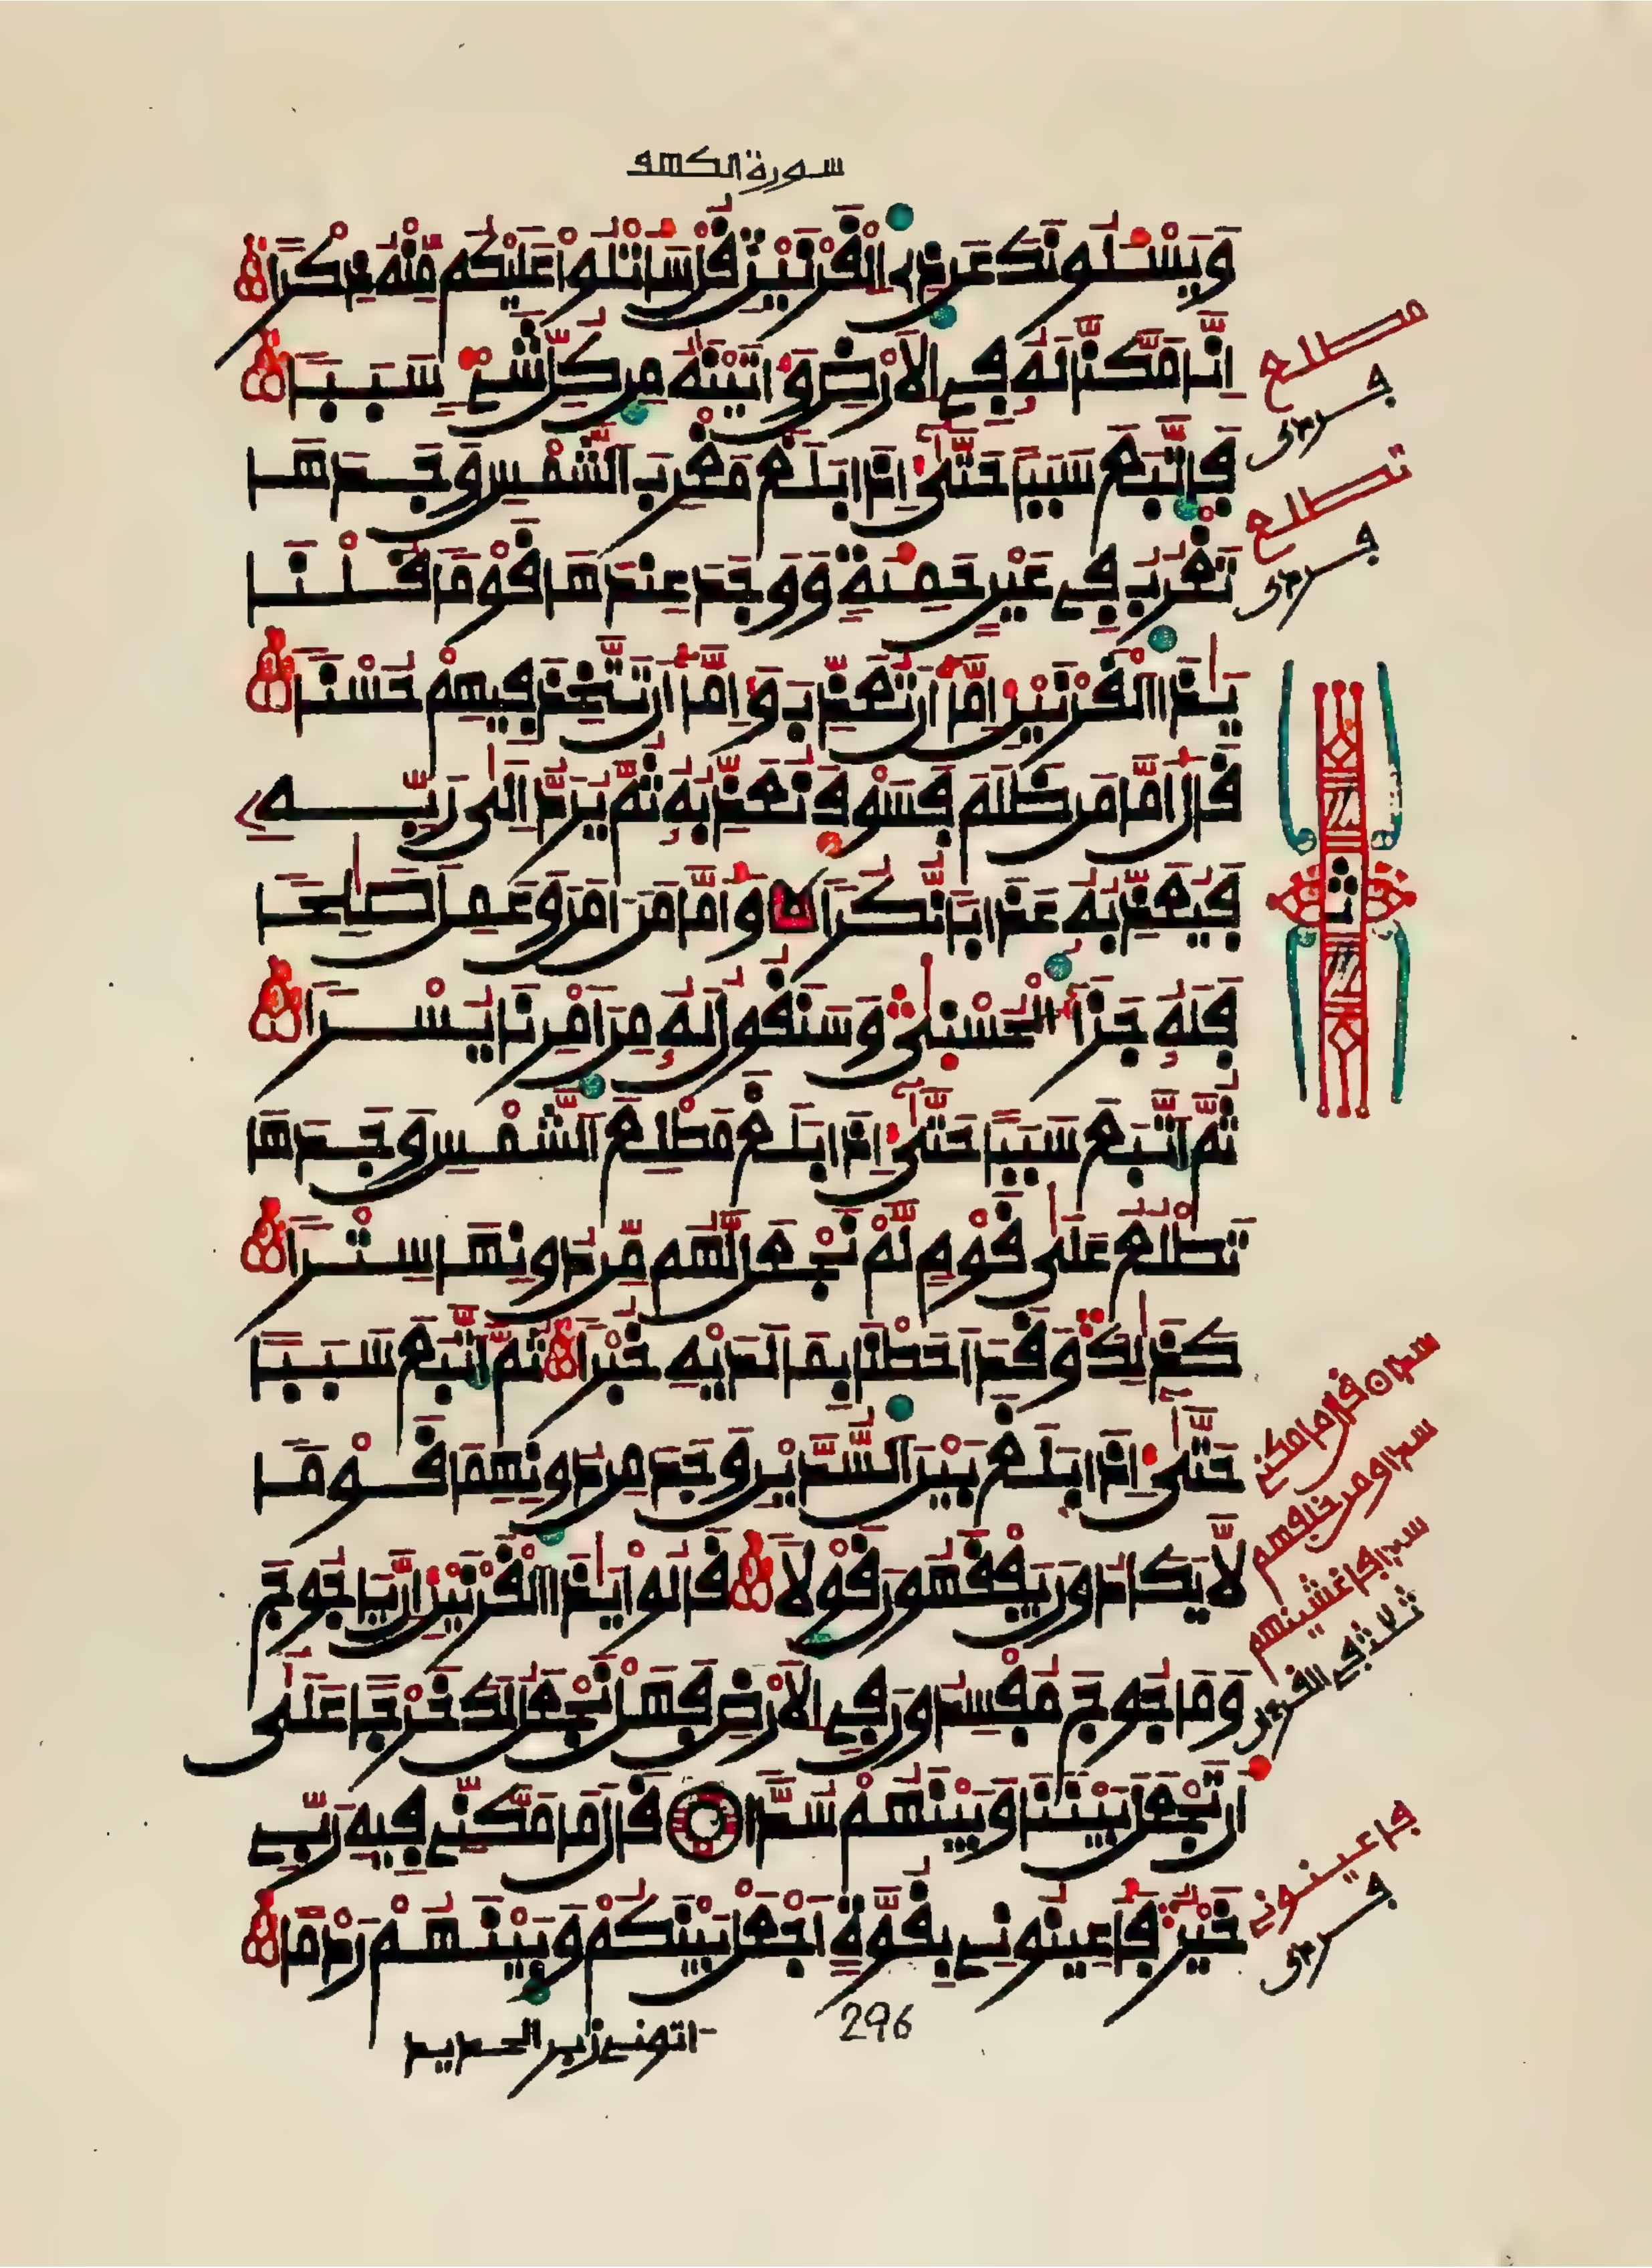 سورة الكهف
وَيَسْـَٔلُونَكَ عَن ذِي اِلْقَرْنَيْنِ قُلْ سَأَتْلُواْ عَلَيْكُم مِّنْهُ ذِكْراً
اِنَّا مَكَّنَّا لَهُۥ فِي اِلَارْضِ وَءَاتَيْنَٰهُ مِن كُلِّ شَےْءٖ سَبَباً
فَاتَّبَعَ سَبَباً حَتَّىٰٓ إِذَا بَلَغَ مَغْرِبَ اَلشَّمْسِ وَجَدَهَا
تَغْرُبُ فِي عَيْنٍ حَمِئَةٖ وَوَجَدَ عِندَهَا قَوْماً قُلْنَا
يَٰذَا اَلْقَرْنَيْنِ إِمَّآ أَن تُعَذِّبَ وَإِمَّآ أَن تَتَّخِذَ فِيهِمْ حُسْناً
قَالَ أَمَّا مَن ظَلَمَ فَسَوْفَ نُعَذِّبُهُۥ ثُمَّ يُرَدُّ إِلَىٰ رَبِّهِۦ
فَيُعَذِّبُهُۥ عَذَاباً نُّكْراً وَأَمَّا مَنَ اٰمَنَ وَعَمِلَ صَٰلِحاً
فَلَهُۥ جَزَآءُ اُلْحُسْنَىٰ وَسَنَقُولُ لَهُۥ مِنَ اَمْرِنَا يُسْراً
ثُمَّ اَتَّبَعَ سَبَباً حَتَّىٰٓ إِذَا بَلَغَ مَطْلِعَ اَلشَّمْسِ وَجَدَهَا
تَطْلُعُ عَلَىٰ قَوْمٖ لَّمْ نَجْعَل لَّهُم مِّن دُونِهَا سِتْراً
كَذَٰلِكَ وَقَدَ اَحَطْنَا بِمَا لَدَيْهِ خُبْراً ثُمَّ اَتَّبَعَ سَبَباً
حَتَّىٰٓ إِذَا بَلَغَ بَيْنَ اَلسُّدَّيْنِ وَجَدَ مِن دُونِهِمَا قَوْماً
لَّا يَكَادُونَ يَفْقَهُونَ قَوْلاً قَالُواْ يَٰذَا اَلْقَرْنَيْنِ إِنَّ يَاجُوجَ
وَمَاجُوجَ مُفْسِدُونَ فِي اِلَارْضِ فَهَلْ نَجْعَلُ لَكَ خَرْجاً عَلَىٰٓ
أَن تَجْعَلَ بَيْنَنَا وَبَيْنَهُمْ سُدّاً قَالَ مَا مَكَّنِّي فِيهِ رَبِّي
خَيْرٞ فَأَعِينُونِي بِقُوَّةٍ اَجْعَلْ بَيْنَكُمْ وَبَيْنَهُمْ رَدْماً
مطلع
تطلع
سدا قال ما مكني
سدا ومن خلفهم
سدا فاغشينهم
فاعينوني
296
ءاتوني زبر الحديد